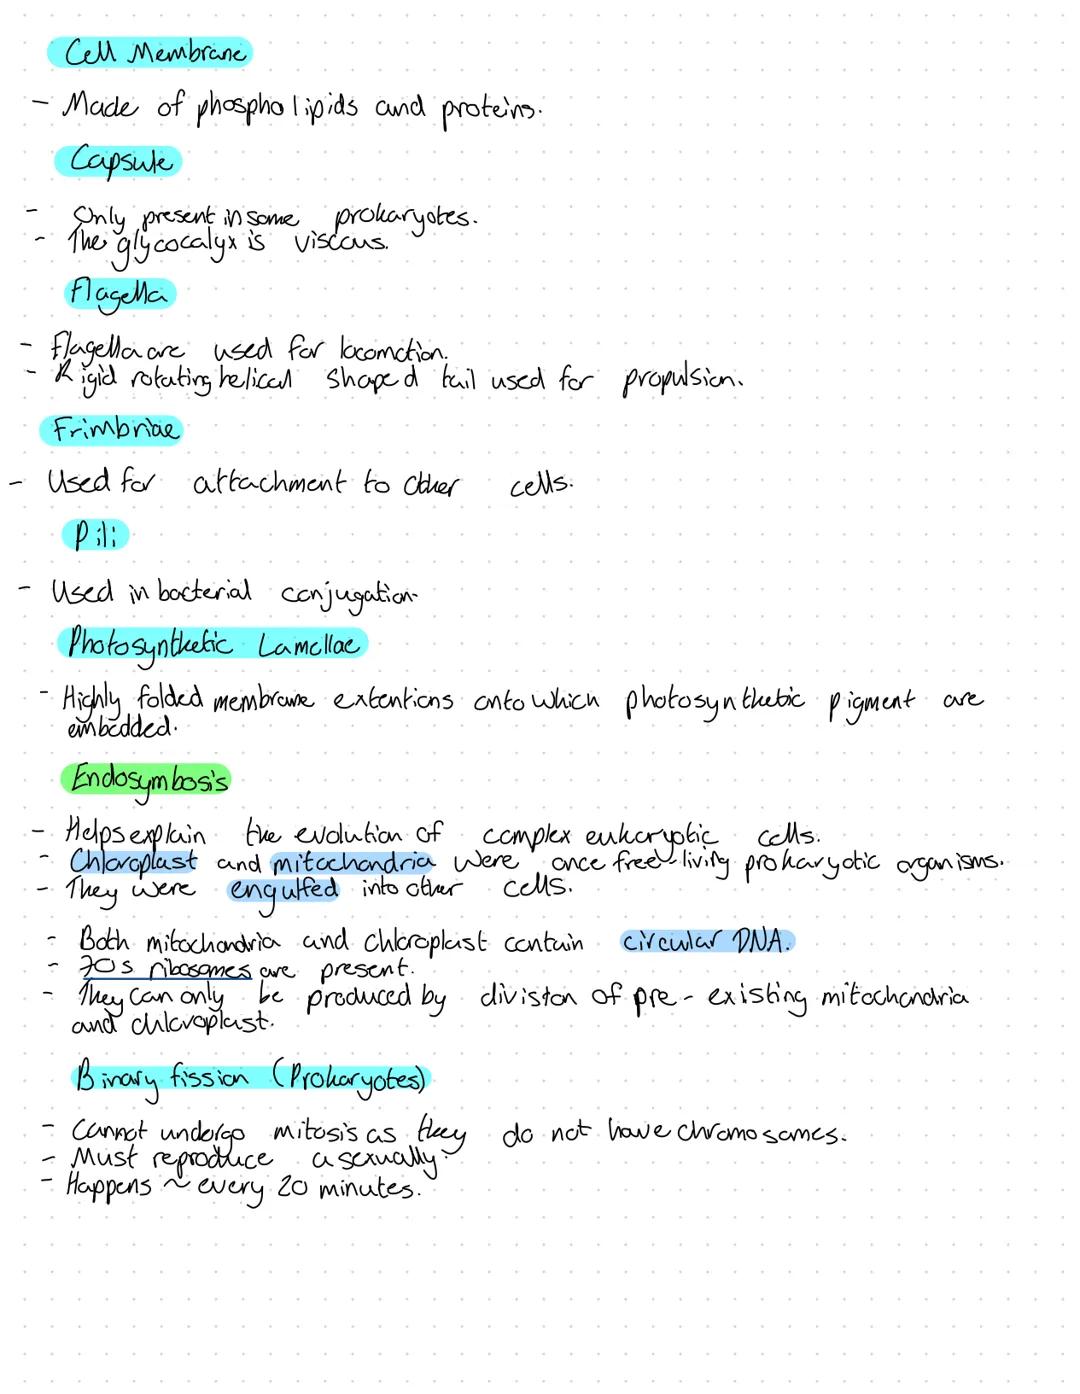 Cell Membrane
- Made of phospholipids and proteins.
Capsule
- Only present in some prokaryotes.
- The glycocalyx is viscous.
Flagella
- Flagella are used for locomotion.
- Rigid rotating helical shaped tail used for propulsion.
Frimbriae
- Used for attachment to other cells.
Pili
- Used in bacterial conjugation
Photosynthetic Lamellae
- Highly folded membrane extentions onto which photosynthetic pigment are
embedded.
Endosymbosis
- Helps explain the evolution of complex eukaryotic cells.
- Chloroplast and mitochondria were once free-living prokaryotic organisms.
- They were engulfed into other cells.
- Both mitochondria and chloroplast contain circular DNA.
- 70s ribosomes are present.
- They can only be produced by division of pre-existing mitochondria
and chloroplast.
Binary fission (Prokaryotes)
- Cannot undergo mitosis as they do not have chromosomes.
- Must reproduce asexually.
- Happens ~ every 20 minutes.